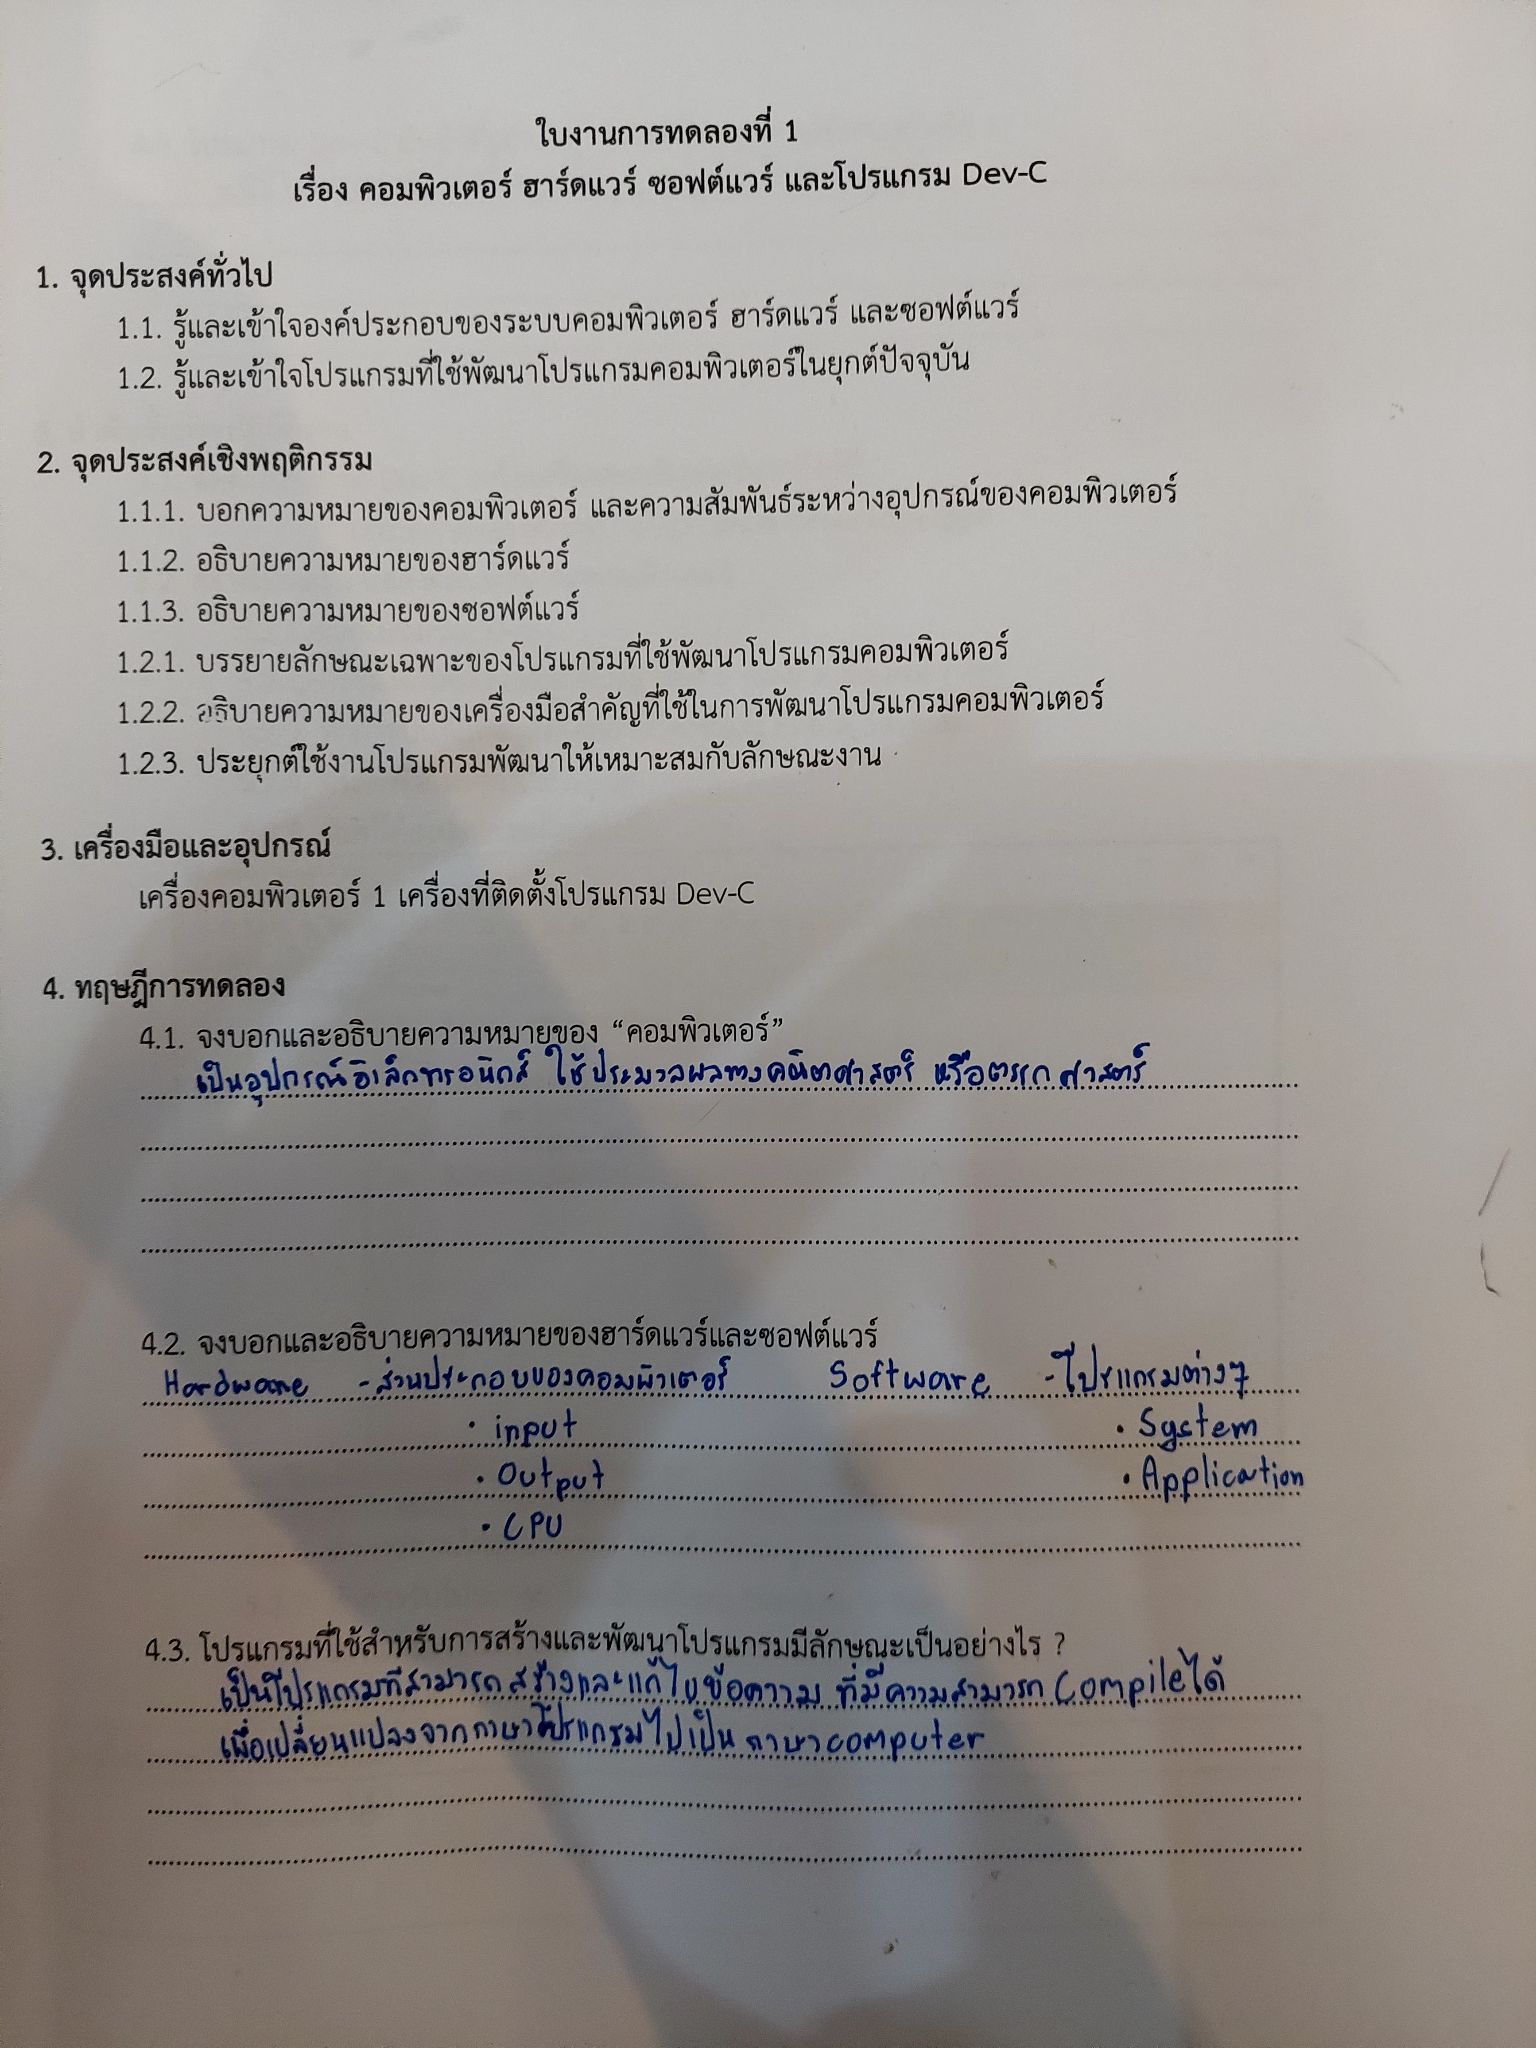 ใบงานการทดลองที่ 1
เรื่อง คอมพิวเตอร์ ฮาร์ดแวร์ ซอฟต์แวร์ และโปรแกรม Dev-C
1. จุดประสงค์ทั่วไป
1.1. รู้และเข้าใจองค์ประกอบของระบบคอมพิวเตอร์ ฮาร์ดแวร์ และซอฟต์แวร์
1.2. รู้และเข้าใจโปรแกรมที่ใช้พัฒนาโปรแกรมคอมพิวเตอร์ในยุกต์ปัจจุบัน
2. จุดประสงค์เชิงพฤติกรรม
1.1.1. บอกความหมายของคอมพิวเตอร์ และความสัมพันธ์ระหว่างอุปกรณ์ของคอมพิวเตอร์
1.1.2. อธิบายความหมายของฮาร์ดแวร์
1.1.3. อธิบายความหมายของซอฟต์แวร์
1.2.1. บรรยายลักษณะเฉพาะของโปรแกรมที่ใช้พัฒนาโปรแกรมคอมพิวเตอร์
1.2.2. อธิบายความหมายของเครื่องมือสำคัญที่ใช้ในการพัฒนาโปรแกรมคอมพิวเตอร์
1.2.3. ประยุกต์ใช้งานโปรแกรมพัฒนาให้เหมาะสมกับลักษณะงาน
3. เครื่องมือและอุปกรณ์
เครื่องคอมพิวเตอร์ 1 เครื่องที่ติดตั้งโปรแกรม Dev-C
4. ทฤษฎีการทดลอง
4.1. จงบอกและอธิบายความหมายของ “คอมพิวเตอร์”
เป็นอุปกรณ์อิเล็กทรอนิกส์ ใช้ประมวลผลทางคณิตศาสตร์ หรือตรรกศาสตร์
4.2. จงบอกและอธิบายความหมายของฮาร์ดแวร์และซอฟต์แวร์
Hardware - ส่วนประกอบของคอมพิวเตอร์ Software - โปรแกรมต่างๆ
• input • System
• Output • Application
• CPU
4.3. โปรแกรมที่ใช้สำหรับการสร้างและพัฒนาโปรแกรมมีลักษณะเป็นอย่างไร ?
เป็นโปรแกรมที่สามารถสร้างและแก้ไขข้อความ ที่มีความสามารถ Compile ได้
เพื่อเปลี่ยนแปลงจากภาษาโปรแกรมไปเป็น ภาษา computer